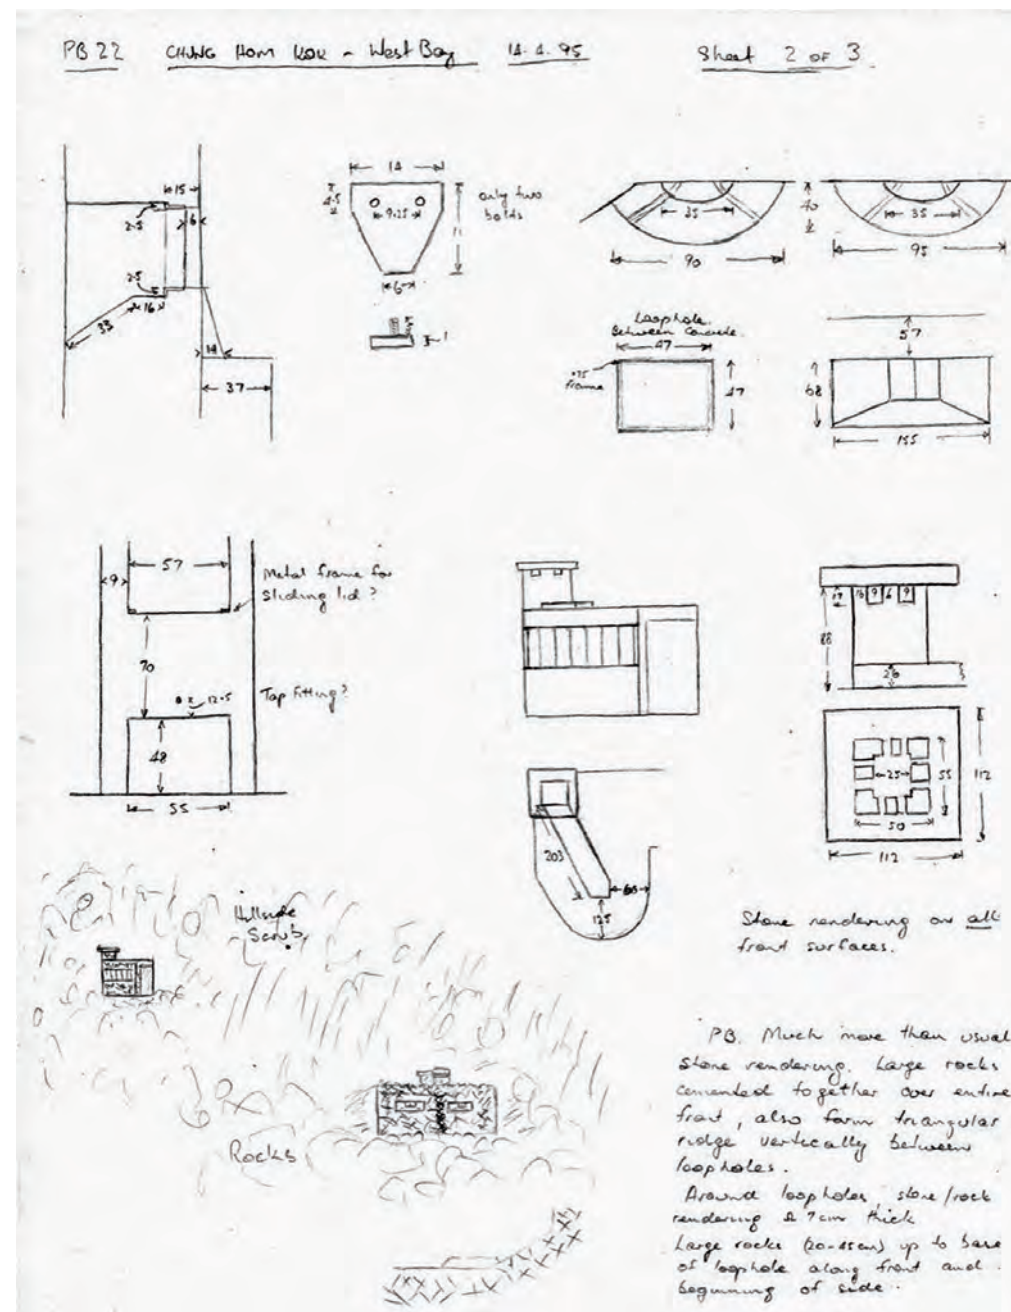 PB 22 CHUNG HOM KOK - West Bay 14.4.95 Sheet 2 OF 3
15
2.5
6
2.5
16
33
14
37
14
4.5
9.25
11
6
only two
bolts
1
35
90
40
35
95
Loophole
Between Concrete
47
.75
frame
47
57
68
155
9
57
Metal frame for
Sliding lid?
70
12.5
Tap Fitting?
48
55
203
125
88
9 6 9
26
25
55
112
50
112
Stone rendering on all
front surfaces.
Hillside
Scrub
Rocks
PB. Much more than usual
stone rendering. Large rocks
cemented together over entire
front, also form triangular
ridge vertically between
loopholes.
Around loopholes, stone/rock
rendering 7cm thick
Large rocks (20-45cm) up to base
of loophole along front and
beginning of side.